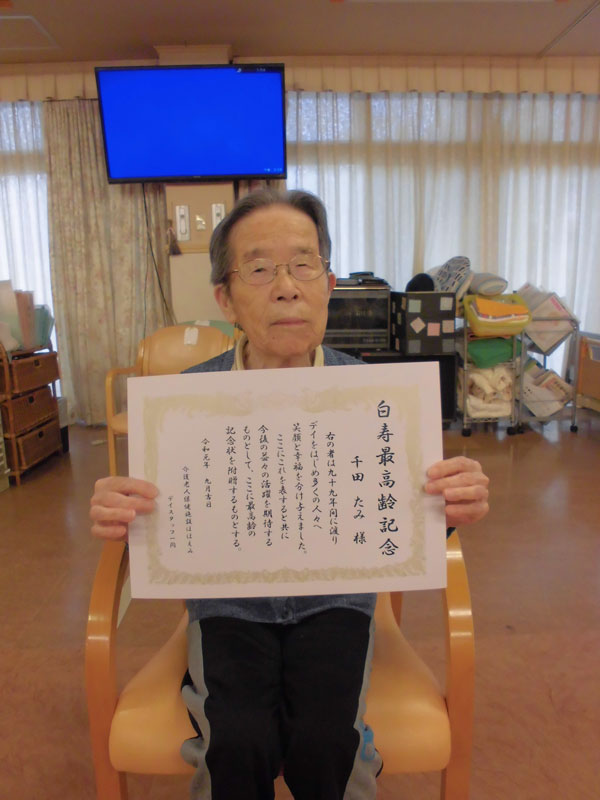 白寿最高齢記念
千田 たみ 様
右の者は九十九年間に渡り
デイをはじめ多くの人々へ
笑顔と幸福を分け与えました。
ここにこれを表すると共に
今後の益々の活躍を期待する
ものとして、ここに最高齢の
記念状を附贈するものとする。
令和元年 九月吉日
介護老人保健施設ほほえみ
デイスタッフ一同